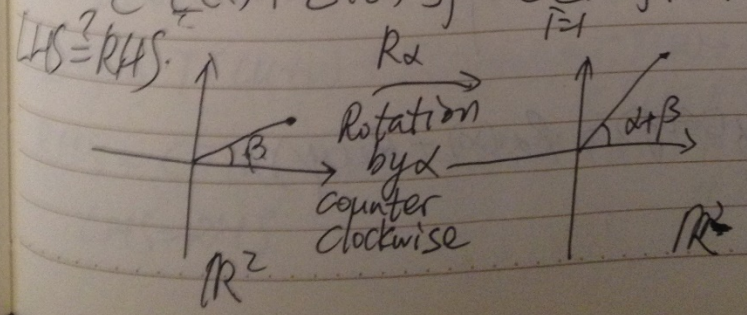 i=1
LHS ?= RHS.
Rα
Rotation
by α
counter
clockwise
β
α+β
ℝ²
ℝ²